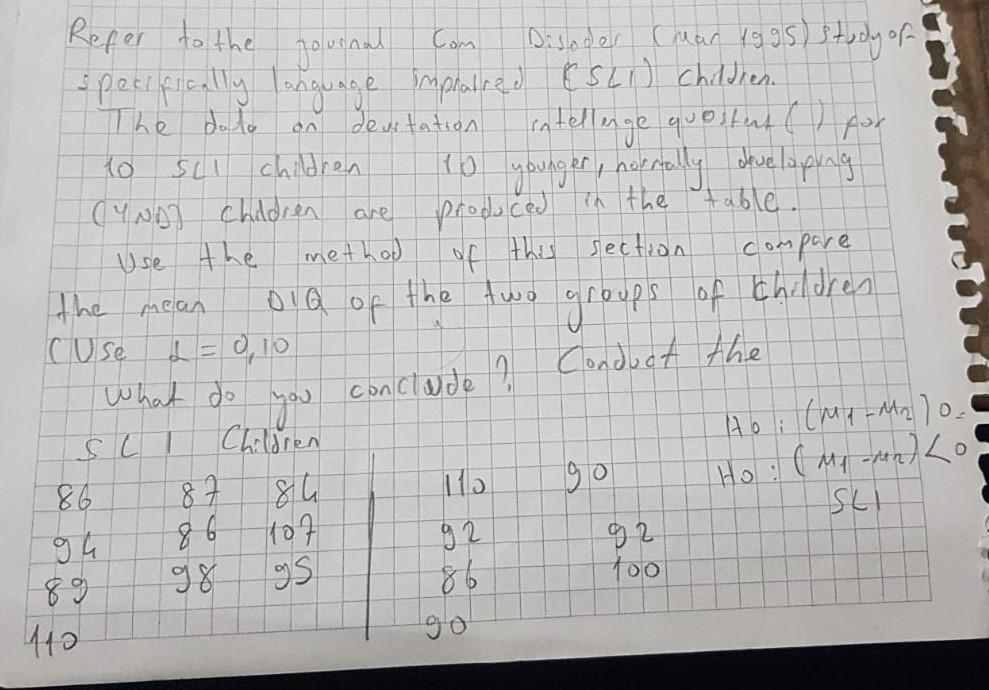 Refer to the journal Com Disoder (Mar 1995) study of
specifically language impraired (SLI) children.
The data on devitation intellinge quostent ( ) for
10 SLI children 10 younger, normally developing
(YND) children are produced in the table.
Use the method of this section compare
the mean DIQ of the two groups of children
(Use α = 0,10
What do you conclude? Conduct the
SLI Children
Ho : (M1-M2) 0=
Ho : (M1-M2) < 0
SLI
86 87 84 110 90
94 86 107 92 92
89 98 95 86 100
110 90